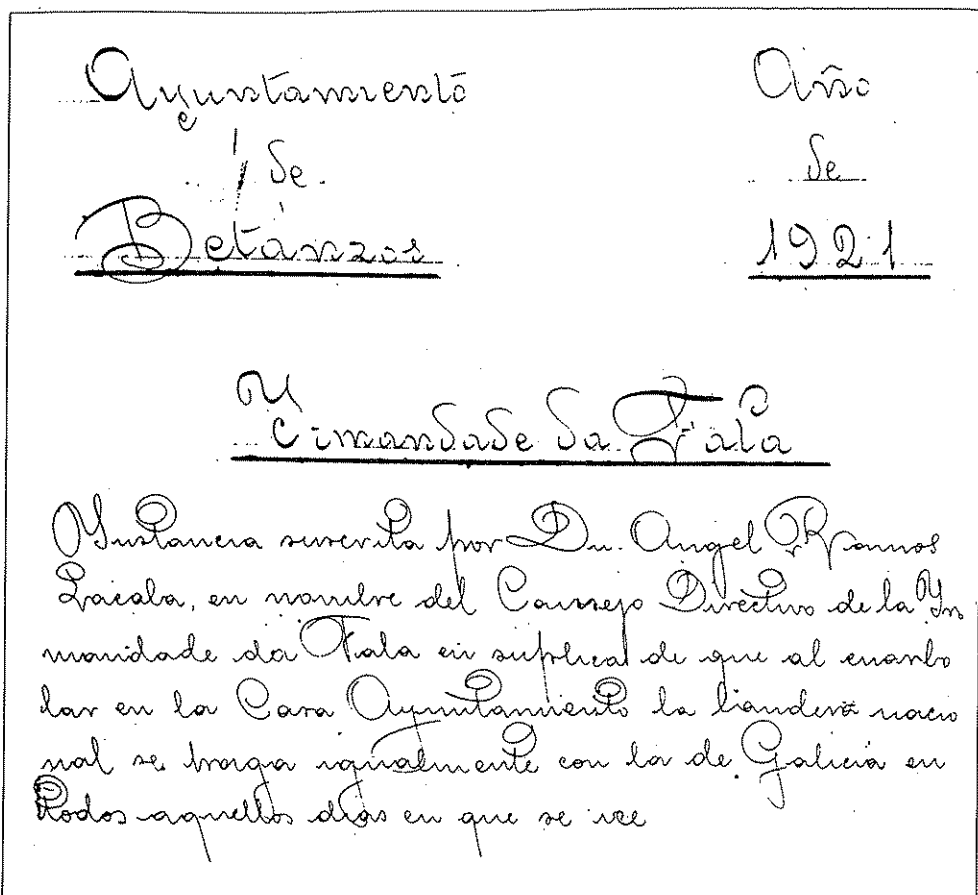 Ayuntamiento
Año
de
de
Betanzos
1921
Yrmandade da Fala
Ynstancia suscrita por Dn. Angel Ramos
Zacala, en nombre del Consejo Directivo de la Yr
mandade da Fala en suplica de que al enarbo
lar en la Casa Ayuntamiento la bandera nacio
nal se haga igualmente con la de Galicia en
todos aquellos dias en que se ice